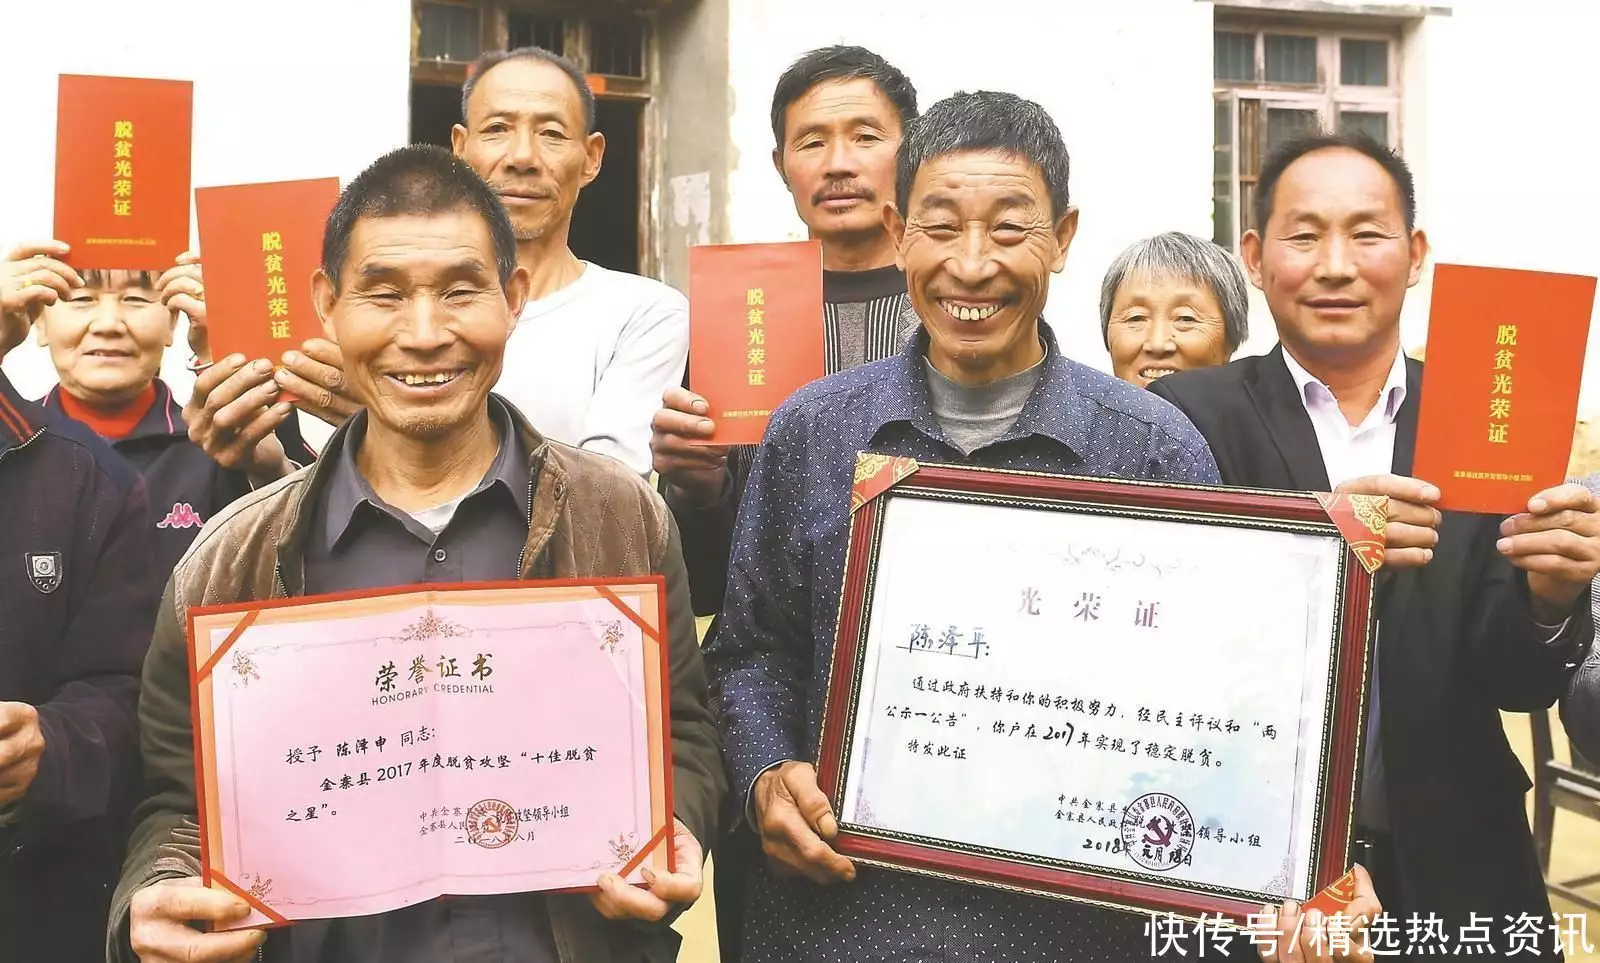 脱贫光荣证
脱贫光荣证
脱贫光荣证
脱贫光荣证
荣誉证书
HONORARY CREDENTIAL
授予 陈泽申 同志：
金寨县2017年度脱贫攻坚“十佳脱贫
之星”。
中共金寨县
攻坚领导小组
金寨县人民
八月
光荣证
陈泽平：
通过政府扶持和你的积极努力，经民主评议和“两
公示一公告”，你户在2017年实现了稳定脱贫。
特发此证
中共金寨县
金寨县人民政
领导小组
2018年元月
日
快传号/精选热点资讯